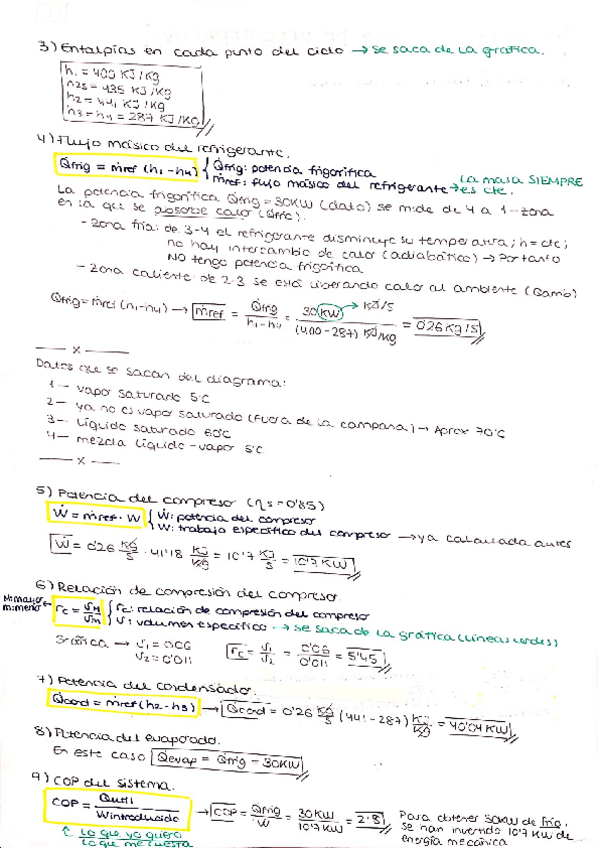 3) Entalpías en cada punto del ciclo → se saca de la gráfica.
h₁ = 400 KJ/Kg
h2s = 435 KJ/Kg
h₂ = 441 KJ/Kg
h₃ = h₄ = 287 KJ/KG
4) Flujo másico del refrigerante.
Q̇frig = ṁref (h₁-h₄) { Q̇frig: potencia frigorífica
ṁref: flujo másico del refrigerante → La masa SIEMPRE es cte.
La potencia frigorífica Q̇frig = 30KW (dato) se mide de 4 a 1 - zona
en la que se absorbe calor
- Zona fría: de 3-4 el refrigerante disminuye su temperatura; h = cte;
no hay intercambio de calor (adiabático) → Por tanto
NO tengo potencia frigorífica
- Zona caliente: de 2-3 se está liberando calor al ambiente
Q̇frig = ṁref (h₁-h₄) → ṁref = Q̇frig / h₁-h₄ = 30 KW / (400-287) KJ/Kg = 0'26 Kg/s
→ KJ/S
x
Datos que se sacan del diagrama:
1 - vapor saturado 5ºC
2 - ya no es vapor saturado (fuera de la campana) → Aprox 70ºC
3 - líquido saturado 60ºC
4 - mezcla líquido-vapor 5ºC
x
5) Potencia del compresor (ηs = 0'85)
Ẇ = ṁref · W { Ẇ: potencia del compresor
W: trabajo específico del compresor → ya calculada antes
Ẇ = 0'26 Kg/s · 41'18 KJ/Kg = 10'7 KJ/s = 10'7KW
6) Relación de compresión del compresor.
M: mayor
m: menor
rc = VM/Vm { rc: relación de compresión del compresor
V: volumen específico → se saca de la gráfica (líneas verdes)
Gráfica → V₁ = 0'06
V₂ = 0'011
rc = V₁/V₂ = 0'06/0'011 = 5'45
7) Potencia del condensador.
Q̇cond = ṁref (h₂-h₃) → Q̇cond = 0'26 Kg/s (441-287) KJ/KG = 40'04 KW
8) Potencia del evaporado.
En este caso Q̇evap = Q̇frig = 30KW
9) COP del sistema.
COP = Qutil / Wintroducido → COP = Q̇frig / Ẇ = 30KW / 10'7KW = 2'81
Para obtener 30KW de frig.
se han invertido 10'7 KW de
energía mecánica
Lo que yo quería
Lo que me cuesta